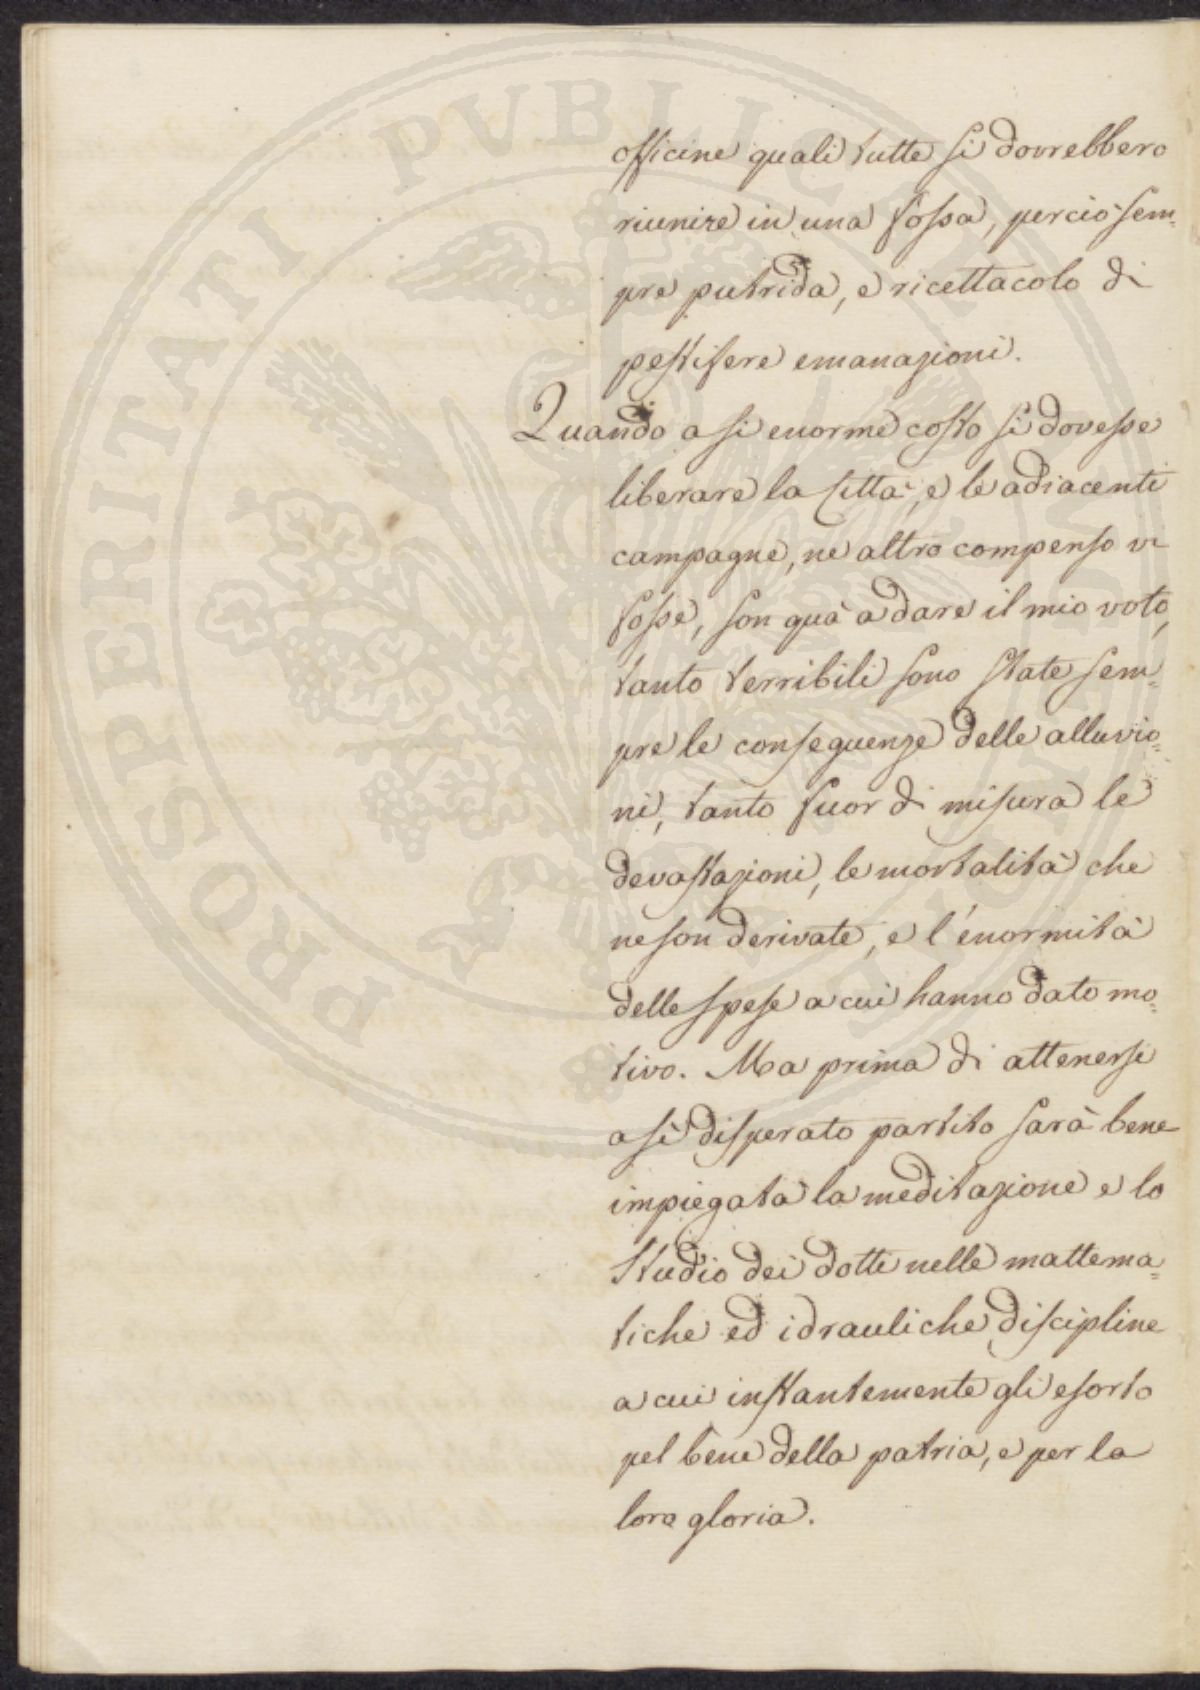 officine quali tutte si dovrebbero
riunire in una fossa, perciò sem=
pre putrida, e ricettacolo di
pestifere emanazioni.
Quando a sì enorme costo si dovesse
liberare la Città, e le adiacenti
campagne, ne altro compenso vi
fosse, son quà a dare il mio voto,
tanto terribili sono state sem=
pre le conseguenze delle alluvio=
ni, tanto fuor di misura le
devastazioni, le mortalità che
ne son derivate, e l'enormità
delle spese a cui hanno dato mo=
tivo. Ma prima di attenersi
a sì disperato partito sarà bene
impiegata la meditazione e lo
studio dei dotti nelle mattema=
tiche ed idrauliche discipline
a cui instantemente gli esorto
pel bene della patria, e per la
loro gloria.
PROSPERITATI PVBLICAE